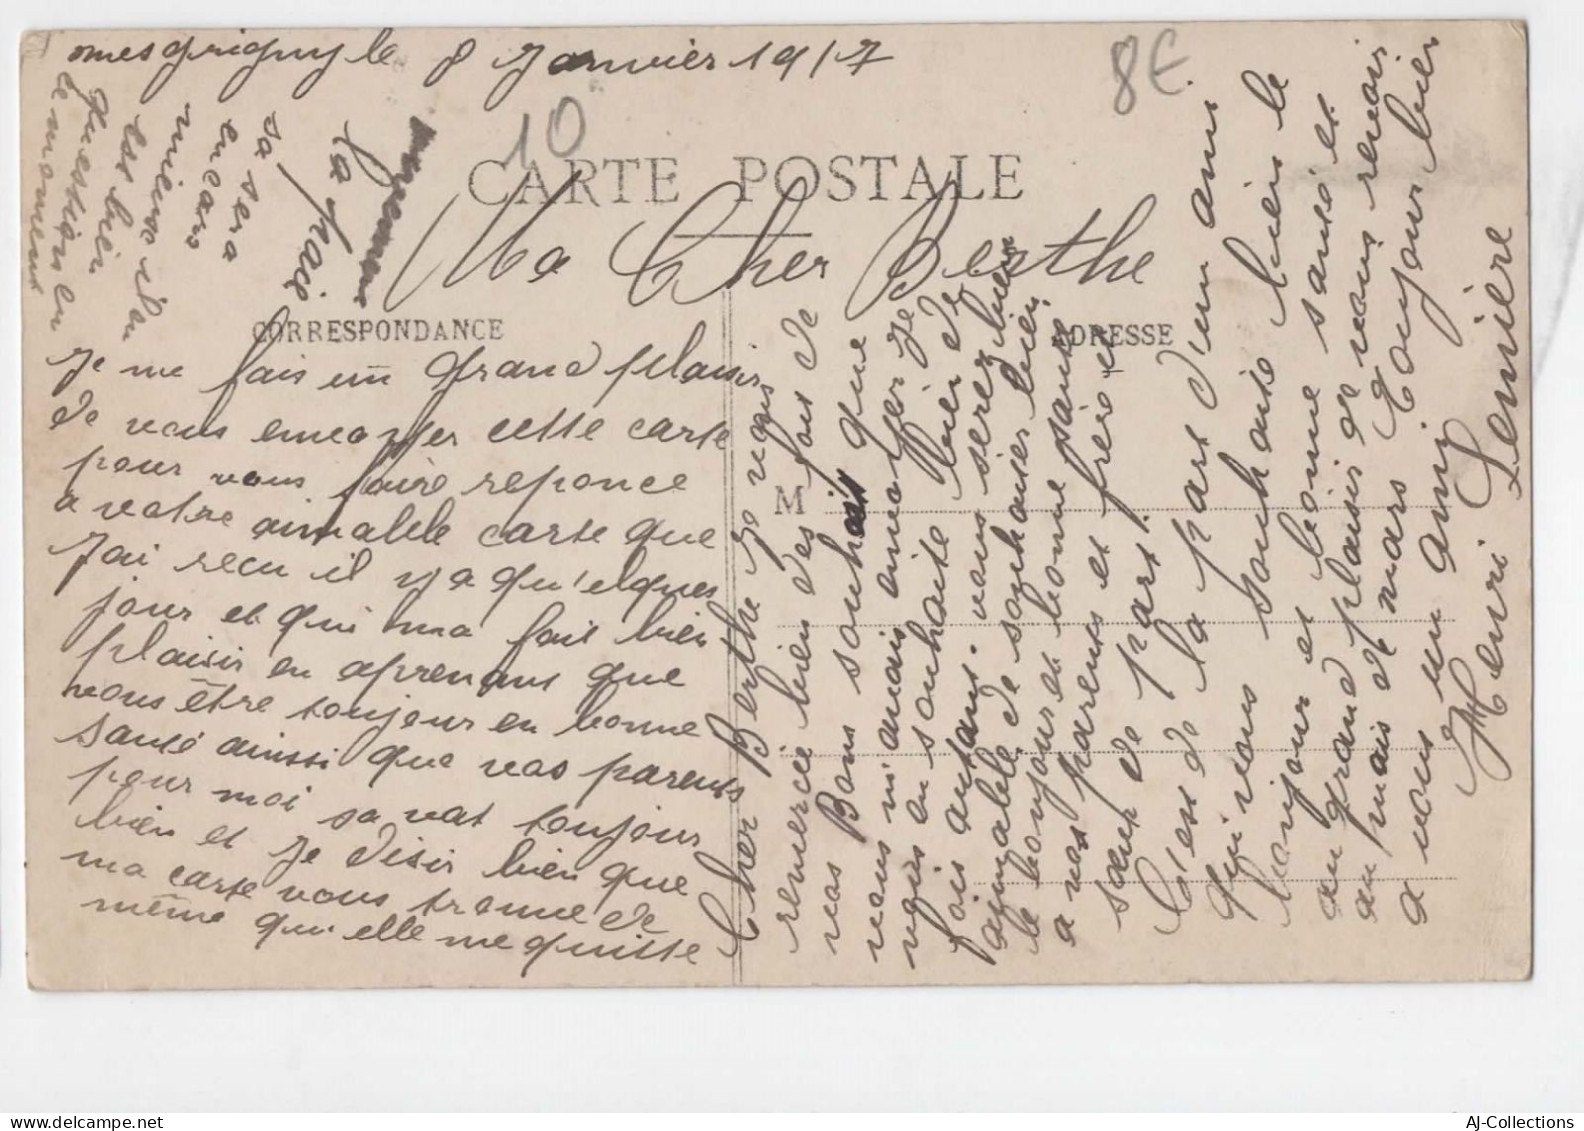 omesgrigny le 8 Janvier 1917
8€
10
CARTE POSTALE
Ma Cher Berthe
CORRESPONDANCE
ADRESSE
M
je me fais un grand plaisir
de vous emvoyer cette carte
pour vous faire reponce
a votre aimable carte que
j'ai recu il y a qu'elques
jour et qui ma fait bien
plaisir en aprenant que
vous être toujour en bonne
santé ainssi que vos parents
pour moi sa vat toujour
bien et je désir bien que
ma carte vous trouve de
même qu'elle me quitte
Cher Berthe je vous
remercie bien des fois de
vos Bons souhait que
vous m'avais emvoyer je
vous en souhaite bien de
fois autant. vous serez bien
aymable de souhaiter bien
le bonjour et bonne santé
a vos parents et frère et
sœur de ma part.
C'est de la part d'un ami
qui vous souhaite bien le
bonjour et bonne santé et
au grand plaisir de vous revoir
au mois de mars toujour bien
a vous un ami
Henri Lemière
la paix
sa sera
encore
mieux il en
est bien
question en
ce moment
AJ-Collections